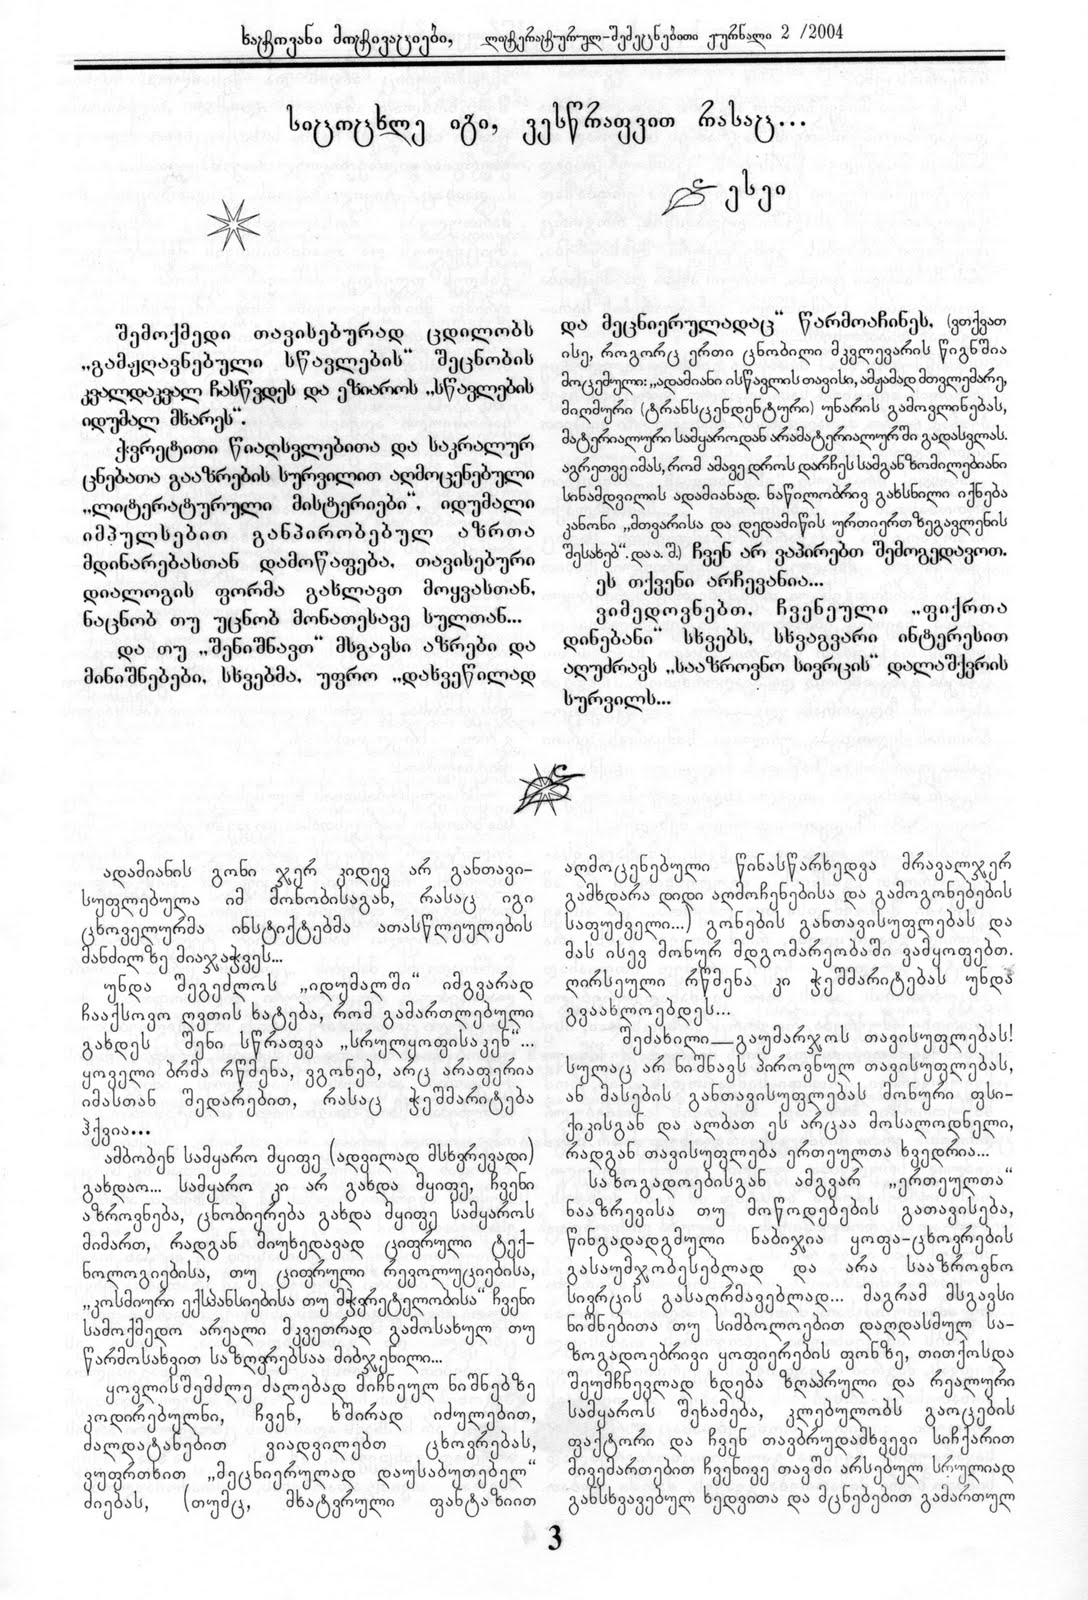 ხატოვანი მოტივაციები, ლიტერატურულ-შემეცნებითი ჟურნალი 2 /2004
სიცოცხლე იგი, ვესწრაფვით რასაც...
ესეი
შემოქმედი თავისებურად ცდილობს
„გამჟღავნებული სწავლების“ შეცნობის
კვალდაკვალ ჩასწვდეს და ეზიაროს „სწავლების
იდუმალ მხარეს“.
ქვრეტითი წიაღსვლებითა და საკრალურ
ცნებათა გააზრების სურვილით აღმოცენებული
„ლიტერატურული მისტერიები“, იდუმალი
იმპულსებით განპირობებულ აზრთა
მდინარებასთან დამოწაფება, თავისებური
დიალოგის ფორმა გახლავთ მოყვასთან,
ნაცნობ თუ უცნობ მონათესავე სულთან...
და თუ „შენიშნავთ“ მსგავსი აზრები და
მინიშნებები, სხვებმა, უფრო „დახვეწილად
და მეცნიერულადაც“ წარმოაჩინეს, (ვთქვათ
ისე, როგორც ერთი ცნობილი მკვლევარის წიგნშია
მოცემული: „ადამიანი ისწავლის თავისი, ამჟამად მთვლემარე,
მიღმური (ტრანსცენდენტური) უნარის გამოვლინებას,
მატერიალური სამყაროდან არამატერიალურში გადასვლას.
აგრეთვე იმას, რომ ამავე დროს დარჩეს სამგანზომილებიანი
სინამდვილის ადამიანად. ნაწილობრივ გახსნილი იქნება
კანონი „მთვარისა და დედამიწის ურთიერთზეგავლენის
შესახებ“. და ა. შ.) ჩვენ არ ვაპირებთ შემოგედავოთ.
ეს თქვენი არჩევანია...
ვიმედოვნებთ, ჩვენეული „ფიქრთა
დინებანი“ სხვებს, სხვაგვარი ინტერესით
აღუძრავს „სააზროვნო სივრცის“ დალაშქვრის
სურვილს...
ადამიანის გონი ჯერ კიდევ არ განთავი-
სუფლებულა იმ მონობისაგან, რასაც იგი
ცხოველურმა ინსტიქტებმა ათასწლეულების
მანძილზე მიაჯაჭვეს...
უნდა შეგეძლოს „იდუმალში“ იმგვარად
ჩააქსოვო ღვთის ხატება, რომ გამართლებული
გახდეს შენი სწრაფვა „სრულყოფისაკენ“...
ყოველი ბრმა რწმენა, ვგონებ, არც არაფერია
იმასთან შედარებით, რასაც ჭეშმარიტება
ჰქვია...
ამბობენ სამყარო მყიფე (ადვილად მსხვრევადი)
გახდაო... სამყარო კი არ გახდა მყიფე, ჩვენი
აზროვნება, ცნობიერება გახდა მყიფე სამყაროს
მიმართ, რადგან მიუხედავად ციფრული ტექ-
ნოლოგიებისა, თუ ციფრული რევოლუციებისა,
„კოსმიური ექსპანსიებისა თუ მჭვრეტელობისა“ ჩვენი
სამოქმედო არეალი მკვეთრად გამოსახულ თუ
წარმოსახვით საზღვრებსაა მიბჯენილი...
ყოვლისშემძლე ძალებად მიჩნეულ ნიშნებზე
კოდირებულნი, ჩვენ, ხშირად იძულებით,
ძალდატანებით ვიადვილებთ ცხოვრებას,
ვუფრთხით „მეცნიერულად დაუსაბუთებელ“
ძიებას, (თუმც, მხატვრული ფანტაზიით
აღმოცენებული წინასწარხედვა მრავალჯერ
გამხდარა დიდი აღმოჩენებისა და გამოგონებების
საფუძველი...) გონების განთავისუფლებას და
მას ისევ მონურ მდგომარეობაში ვამყოფებთ.
ღირსეული რწმენა კი ჭეშმარიტებას უნდა
გვაახლოებდეს...
შეძახილი—გაუმარჯოს თავისუფლებას!
სულაც არ ნიშნავს პიროვნულ თავისუფლებას,
ან მასების განთავისუფლებას მონური ფსი-
ქიკისგან და ალბათ ეს არცაა მოსალოდნელი,
რადგან თავისუფლება ერთეულთა ხვედრია...
საზოგადოებისგან ამგვარ „ერთეულთა“
ნააზრევისა თუ მოწოდებების გათავისება,
წინგადადგმული ნაბიჯია ყოფა-ცხოვრების
გასაუმჯობესებლად და არა სააზროვნო
სივრცის გასაღრმავებლად... მაგრამ მსგავსი
ნიშნებითა თუ სიმბოლოებით დაღდასმულ სა-
ზოგადოებრივი ყოფიერების ფონზე, თითქოსდა
შეუმჩნევლად ხდება ზღაპრული და რეალური
სამყაროს შეხამება, კლებულობს გაოცების
ფაქტორი და ჩვენ თავბრუდამხვევი სიჩქარით
მივემართებით ჩვენივე თავში არსებულ სრულიად
განსხვავებულ ხედვითა და მცნებებით გამართულ
3